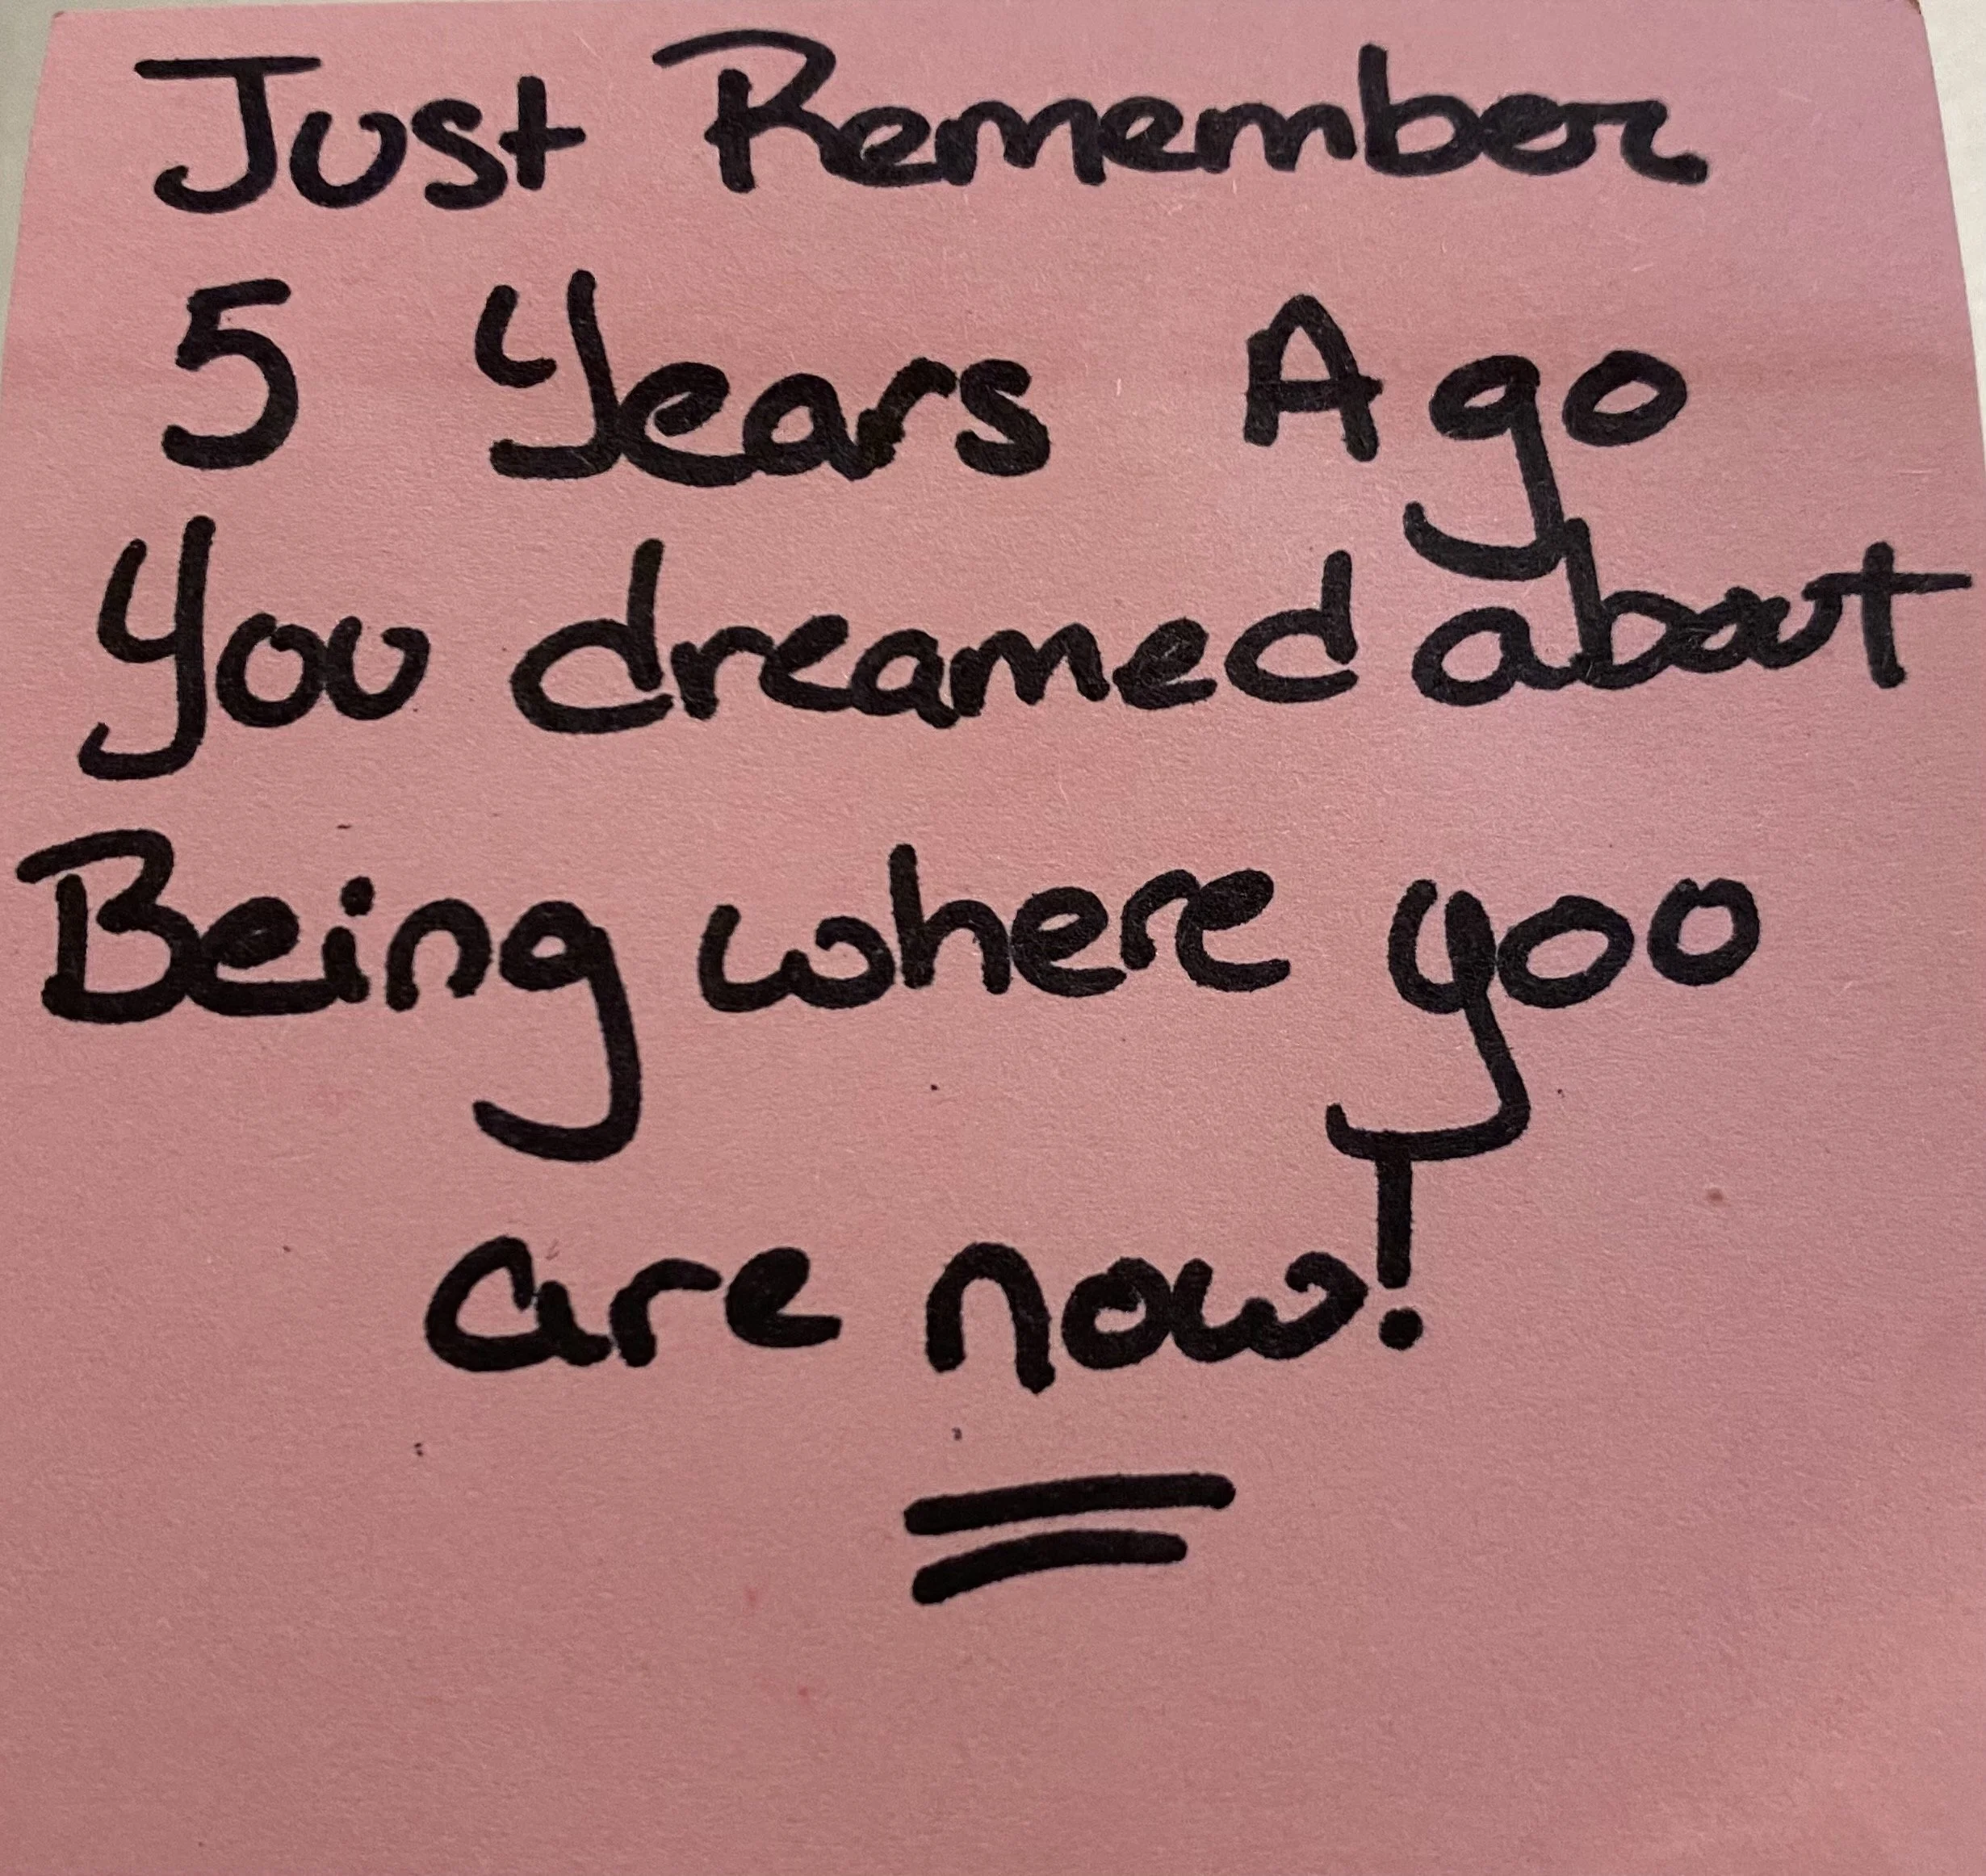 Just Remember
5 Years Ago
You dreamed about
Being where you
are now!